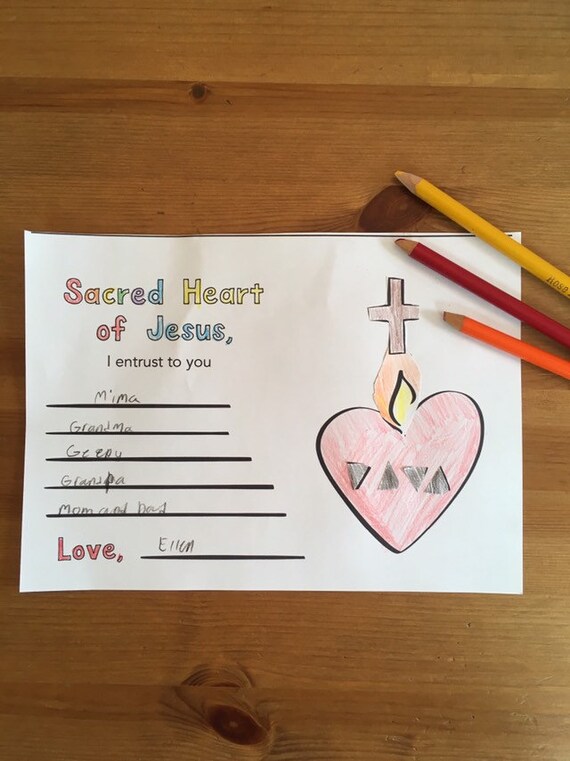 Sacred Heart
of Jesus,
I entrust to you
M'ima
Grandma
Geepu
Grandpa
Mom and Dad
Love, Ellen